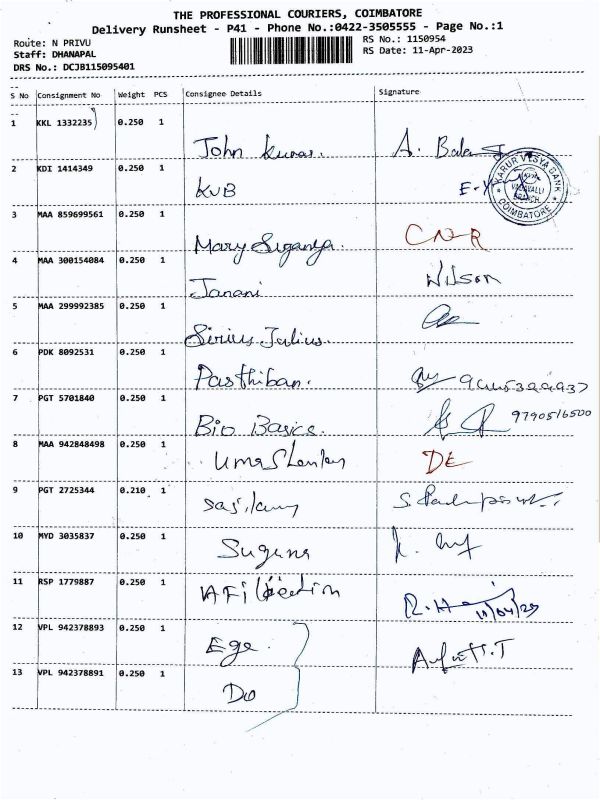 THE PROFESSIONAL COURIERS, COIMBATORE
Delivery Runsheet - P41 - Phone No.:0422-3505555 - Page No.:1
Route: N PRIVU
RS No.: 1150954
Staff: DHANAPAL
RS Date: 11-Apr-2023
DRS No.: DCJB115095401
S No Consignment No Weight PCS Consignee Details Signature
1 KKL 1332235 0.250 1
John Kumar. A. Bala
2 KDI 1414349 0.250 1
KVB
KARUR VYSYA BANK
VADAVALLI
BRANCH
COIMBATORE
3 MAA 859699561 0.250 1
Mary Suganya. CNR
4 MAA 300154084 0.250 1
Janani Wilson
5 MAA 299992385 0.250 1
Sirius Julius.
6 PDK 8092531 0.250 1
Parthiban.
7 PGT 5701840 0.250 1
Bio Basics. 9790516500
8 MAA 942848498 0.250 1
Uma Shankar DE
9 PGT 2725344 0.210 1
10 MYD 3035837 0.250 1
Suguna
11 RSP 1779887 0.250 1
11/04/23
12 VPL 942378893 0.250 1
Ege.
13 VPL 942378891 0.250 1
Do